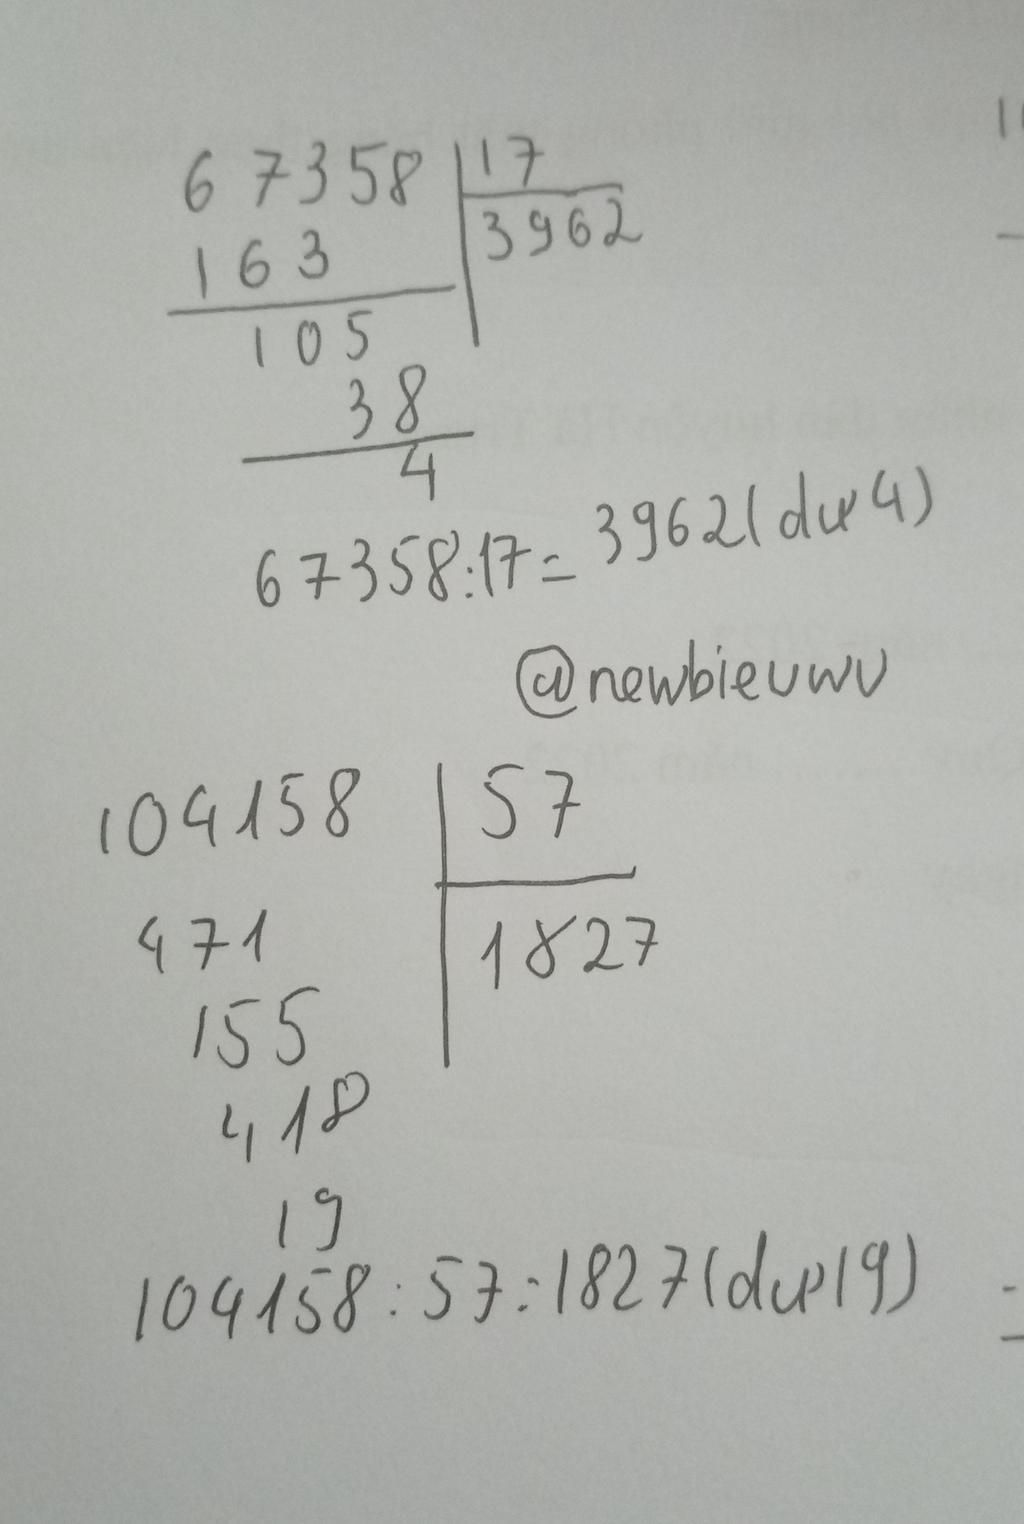 67358 17
163 3962
105
38
4
67358:17=3962(dư 4)
@newbieuwu
104158 57
471 1827
155
418
19
104158:57=1827(dư 19)